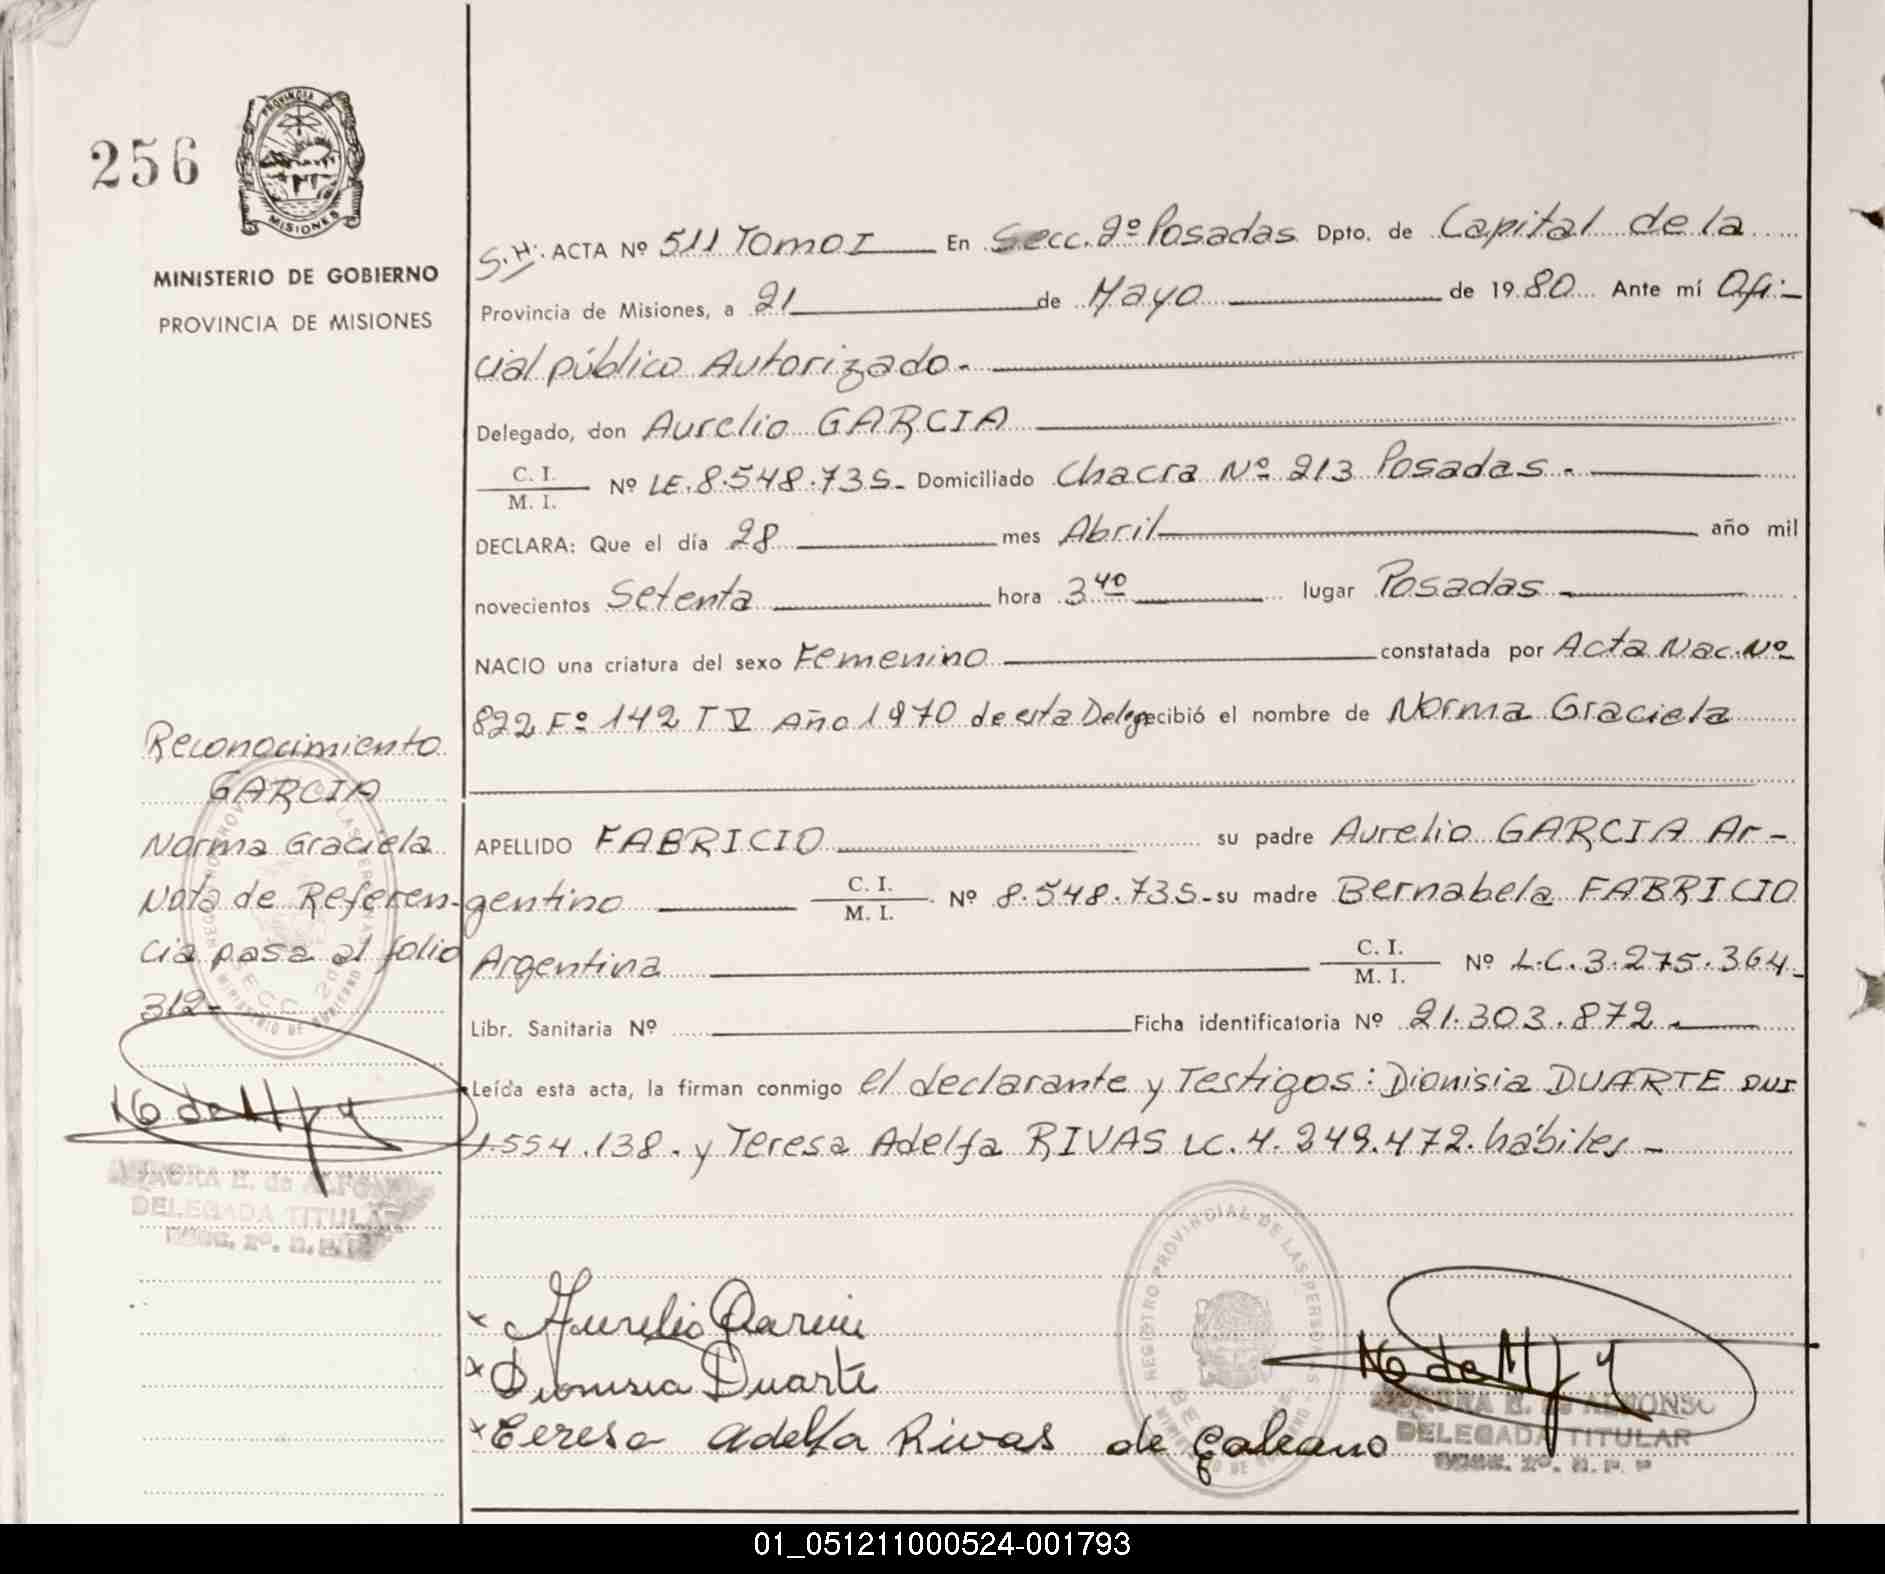 256
PROVINCIA
MISIONES
MINISTERIO DE GOBIERNO
PROVINCIA DE MISIONES
S.H. ACTA Nº 511 Tomo I En Secc. 2º Posadas Dpto. de Capital de la
Provincia de Misiones, a 21 de Mayo de 1980 Ante mí Ofi-
cial público Autorizado.-
Delegado, don Aurelio GARCIA
C. I. / M. I. Nº LE. 8.548.735- Domiciliado Chacra Nº 213 Posadas.-
DECLARA: Que el día 28 mes Abril año mil
novecientos Setenta hora 3 40 lugar Posadas
NACIO una criatura del sexo Femenino constatada por Acta Nac. Nº
822 Fº 142 T V Año 1970 de esta Deleg ecibió el nombre de Norma Graciela
APELLIDO FABRICIO su padre Aurelio GARCIA Ar-
gentino C. I. / M. I. Nº 8.548.735- su madre Bernabela FABRICIO
Argentina C. I. / M. I. Nº L.C. 3.275.364-
Libr. Sanitaria Nº Ficha identificatoria Nº 21.303.872.
Leída esta acta, la firman conmigo el declarante y Testigos: Dionisia DUARTE DNI
1.554.138. y Teresa Adelfa RIVAS LC. 4.249.472. hábiles -
Reconocimiento
GARCIA
Norma Graciela
Nota de Referen-
cia pasa al folio
312-
E. de ALFONSO
DELEGADA TITULAR
x Aurelio Garcia
x Dionisia Duarte
x Teresa Adelfa Rivas de Galeano
REGISTRO PROVINCIAL DE LAS PERSONAS
MINISTERIO DE GOBIERNO
E. de ALFONSO
DELEGADA TITULAR
01_051211000524-001793